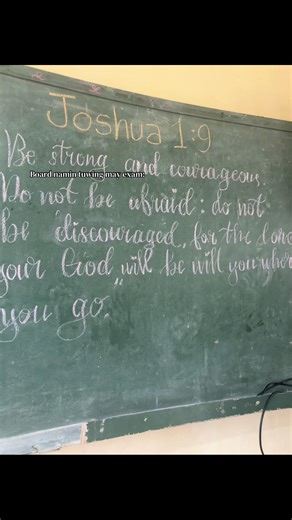 Joshua 1:9
Be strong and courageous.
Board namin tuwing may exam:
Do not be afraid: do not
be discouraged, for the
your God will be will you wher
you go."